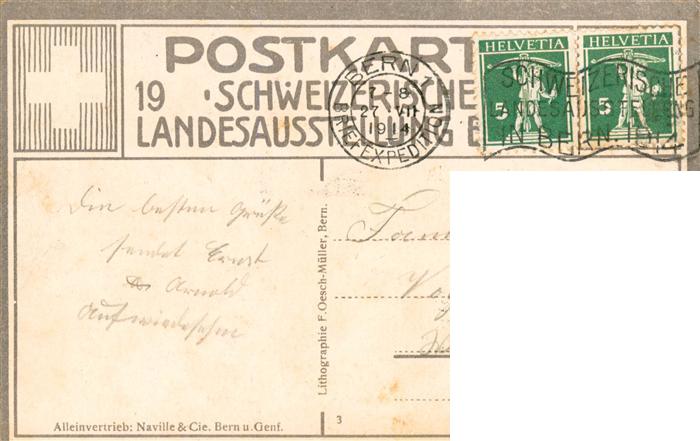 POSTKART
19 · SCHWEIZERISCHE
LANDESAUSSTELLUNG B
BERN 1
7-8
27.VII
1914
BRIEFEXPEDITION
HELVETIA
5
HELVETIA
5
SCHWEIZERISCHE
LANDESAUSSTELLUNG
IN BERN 1914
Die besten Grüße
sendet Ernst
Arnold
Aufwiedersehn
Lithographie F. Oesch-Müller, Bern.
Fam
Alleinvertrieb: Naville & Cie. Bern u. Genf.
3